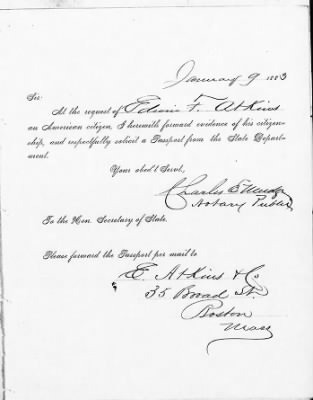 January 9 1883
Sir:
At the request of Edwin F. Atkins
an American citizen, I herewith forward evidence of his citizen-
ship, and respectfully solicit a Passport from the State Depart-
ment.
Your obed't Servt,
Charles E.
Notary Public
To the Hon. Secretary of State.
Please forward the Passport per mail to
E. Atkins & Co
35 Broad St.
Boston
Mass